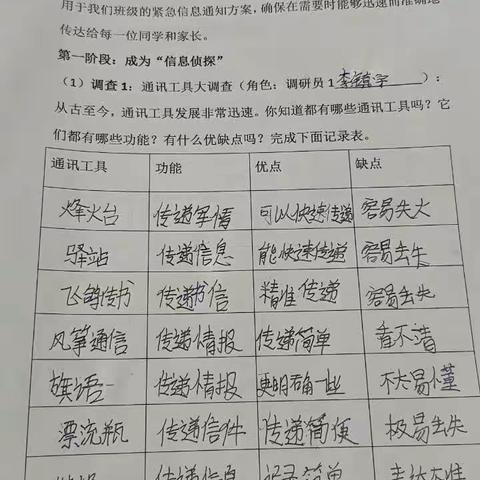 用于我们班级的紧急信息通知方案，确保在需要时能够迅速而准确地
传达给每一位同学和家长。
第一阶段：成为“信息侦探”
（1）调查1：通讯工具大调查（角色：调研员1 李 宇）：
从古至今，通讯工具发展非常迅速。你知道都有哪些通讯工具吗？它
们都有哪些功能？有什么优缺点吗？完成下面记录表。
通讯工具 功能 优点 缺点
烽火台 传递军情 可以快速传递 容易失火
驿站 传递信息 能快速传递 容易丢失
飞鸽传书 传递书信 精准传递 容易丢失
风筝通信 传递情报 传递简单 看不清
旗语 传递情报 更明确一些 不太易懂
漂流瓶 传递信件 传递简便 极易丢失
传递信息 记录简单